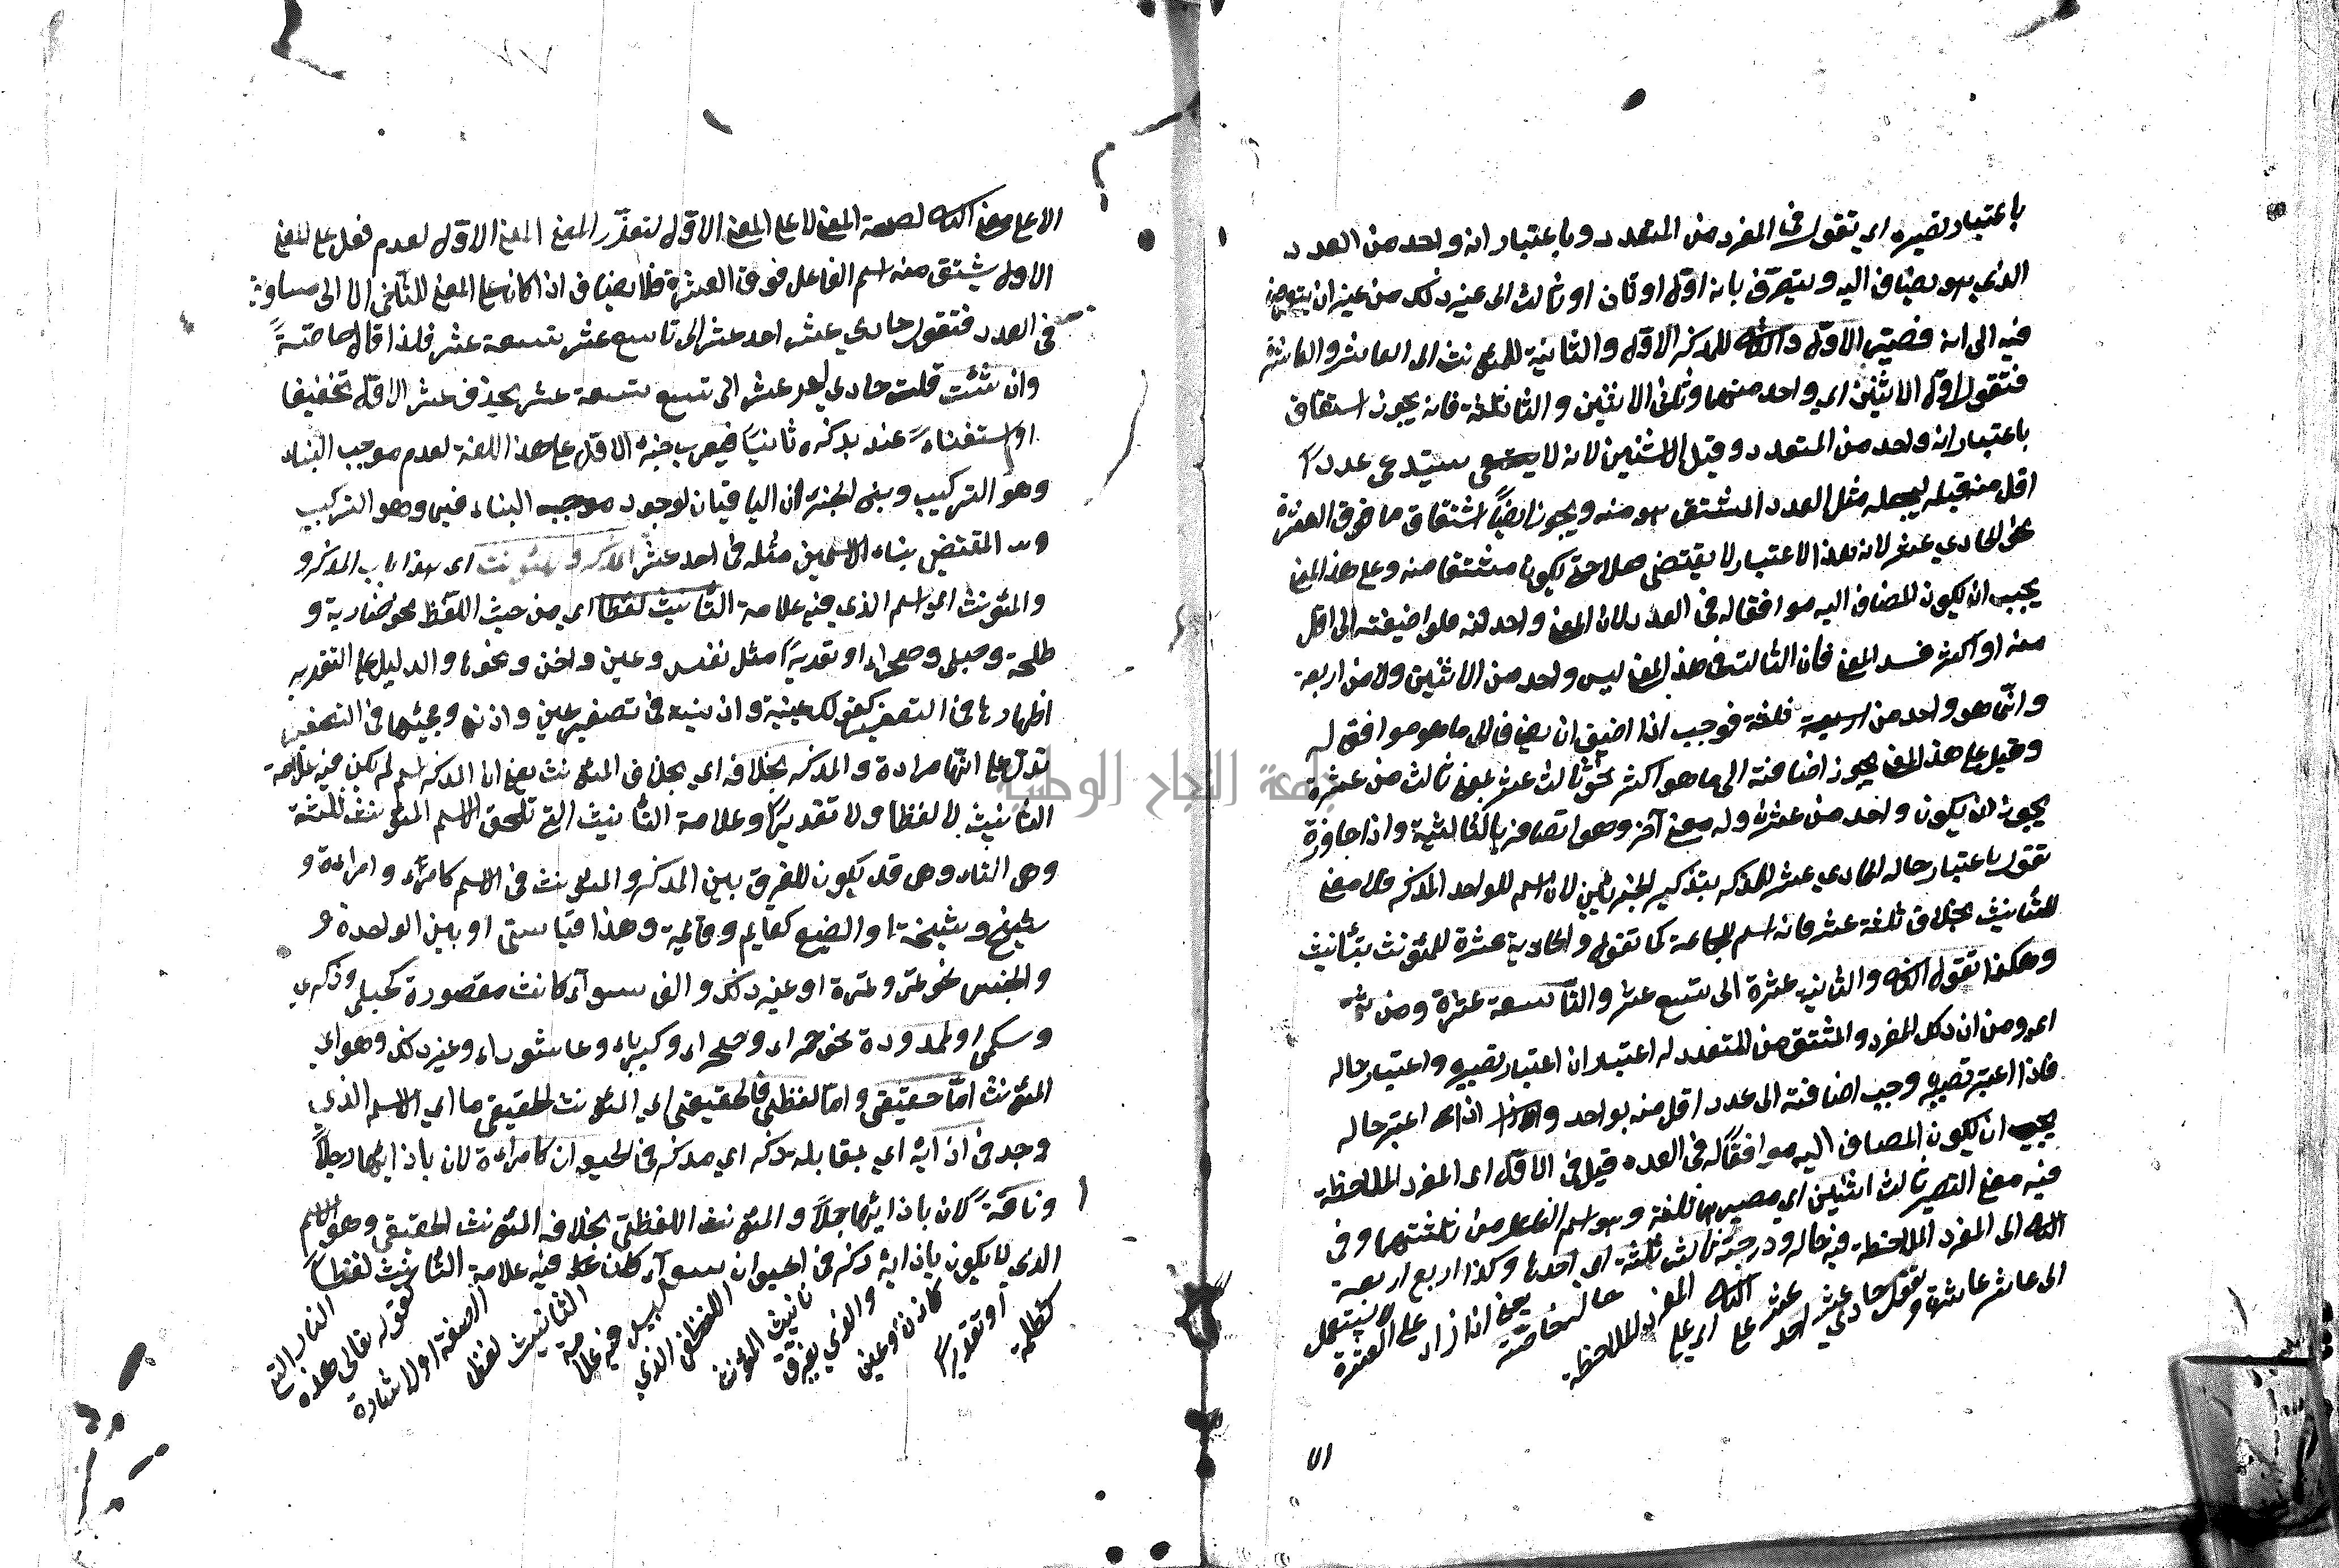 باعتبار تصيره اي تقول في المفرد من المتعدد وباعتبار انه واحد من العدد
الذي هو يضاف اليه ويتعرف بانه اول او ثان او ثالث الى غير ذلك من غير ان
فيه الى انه فصير الاول والثاني للمذكر الاول والثانية للمؤنث الى العاشر والعاشرة
فتقول اول الاثنين اي واحد منهما وثاني الاثنين والثالثلثة فانه يجوز اشتقاق
باعتبار انه واحد من المتعدد وقيل الاثنين لانه لا يستدعي عددا
اقل منه قبله ليجعله مثل العدد المشتق هو منه ويجوز ايضاً اشتقاق ما فوق العشرة
نحو الحادي عشر لانه بهذا الاعتبار لا يقتضي صلاحية يكون مشتقا منه وعلى هذا المعنى
يجب ان يكون المضاف اليه موافقا له في العدد لان المعنى واحد منه فلو اضيفت الى اقل
منه او اكثر فسد المعنى فان الثالث في هذا المعنى ليس واحد من الاثنين ولا من اربعة
وانما هو واحد من ثلثة فوجب اذا اضيف ان يضاف الى ما هو موافق له
وقيل على هذا المعنى يجوز اضافته الى ما هو اكثر نحو ثالث عشر بمعنى ثالث من عشرة
يجوز ان يكون واحد من عشرة وله معنى آخر وهو اتصافه بالثالثية واذا جاوزة
تقول باعتبار حاله الحادي عشر للمذكر بتذكير الجزئين لانه اسم للواحد المذكر فلا معنى
للتأنيث بخلاف ثلثة عشر فانه اسم للجماعة كما تقول والحادية عشرة للمؤنث بتأنيث
وهكذا تقول الثاني والثانية عشرة الى تسع عشر والتاسعة عشرة ومن ثم
اي ومن ان ذكر المفرد والمشتق من المتعدد له اعتباران اعتبار تصييره واعتبار حاله
فاذا اعتبر تصييره وجب اضافته الى عدد اقل منه بواحد واذا اعتبر حاله
يجب ان يكون المضاف اليه موافقاً له في العدد قيل في الاول اي المفرد الملاحظة
فيه معنى التصير ثالث اثنين اي مصيرهما ثلثة وهو اسم الفاعل من ثلثتهما وفي
الثاني اي المفرد الملاحظة فيه حاله ودرجته ثالث ثلثة اي احدها وكذا اربع اربعة
الى عاشر عاشرة وتقول حادي عشر احد عشر على الثاني اي على المفرد الملاحظة حاله خاصة يعني اذا زاد على العشرة لا يستعمل
٧١
الا على معنى الثاني لصحة المعنى لا على المعنى الاول لتعذر المعنى الاول لعدم فعل على المعنى
الاول يشتق منه اسم الفاعل فوق العشرة فلا يضاف اذا كان على المعنى الثاني الا الى مساويه
في العدد فتقول حادي عشر احد عشر الى تاسع عشر تسعة عشر فلذا قال خاصّةً
وان شئت قلت حادي احد عشر الى تسع تسعة عشر بحذف عشر الاول تخفيفا
او استغناءً عنه بذكره ثانيا فيعرب جزء الاول على هذا اللغة لعدم موجب البناء
وهو التركيب وبني الجزءان الباقيان لوجود موجب البناء فيه وهو التركيب
المقتضي بناء الاسمين مثله في احد عشر المذكر والمؤنث اي هذا باب المذكر و
والمؤنث اي اسم الذي فيه علامة التأنيث لفظا اي من حيث اللفظ نحو ضاربة و
طلحة وحبلى وصحراء او تقديرا مثل نفس وعين واذن ونحوها والدليل على التقدير
اظهارها في التصغير كقولك عيينة واذينة في تصغير عين واذن ومجيئها في التصغير
تدل على انها مرادة والمذكر بخلافه اي بخلاف المؤنث يعني ان المذكر اسم لم يكن فيه علامة
التأنيث لا لفظا ولا تقديرا وعلامة التأنيث التي تلحق الاسم المؤنث ثلثة
وهي التاء وهي قد يكون للفرق بين المذكر والمؤنث في الاسم كامرأ وامراءة و
شيخ وشيخة او الصفة كقايم وقايمة وهذا قياسي او بين الواحدة و
والجنس نحو تمر وتمرة او غير ذلك والف سوآء كانت مقصورة كحبلى وذكرى
وسلمى او ممدودة نحو حمراء وصحراء وكبرياء وعاشوراء وغير ذلك وهو اي
المؤنث امّا حقيقي وامّا لفظي فالحقيقي اي المؤنث الحقيقي ما اي الاسم الذي
وجد في ازائه اي بمقابله ذكر اي مذكر في الحيوان كامراءة لان بازائها رجلاً
وناقةً لان بازائها جملاً والمؤنث اللفظي بخلافه المؤنث الحقيقي وهو الاسم
الذي لا يكون بازائه ذكر في الحيوان سوآء كان فيه علامة التأنيث لفظاً
كظلمة او تقديرا كاذن وعين والذي يفرق تأنيث المؤنث اللفظي الذي ليس فيه علامة التأنيث لفظا الصفة او الاشارة كقوله تعالى هذه النار التي
جامعة النجاح الوطنية